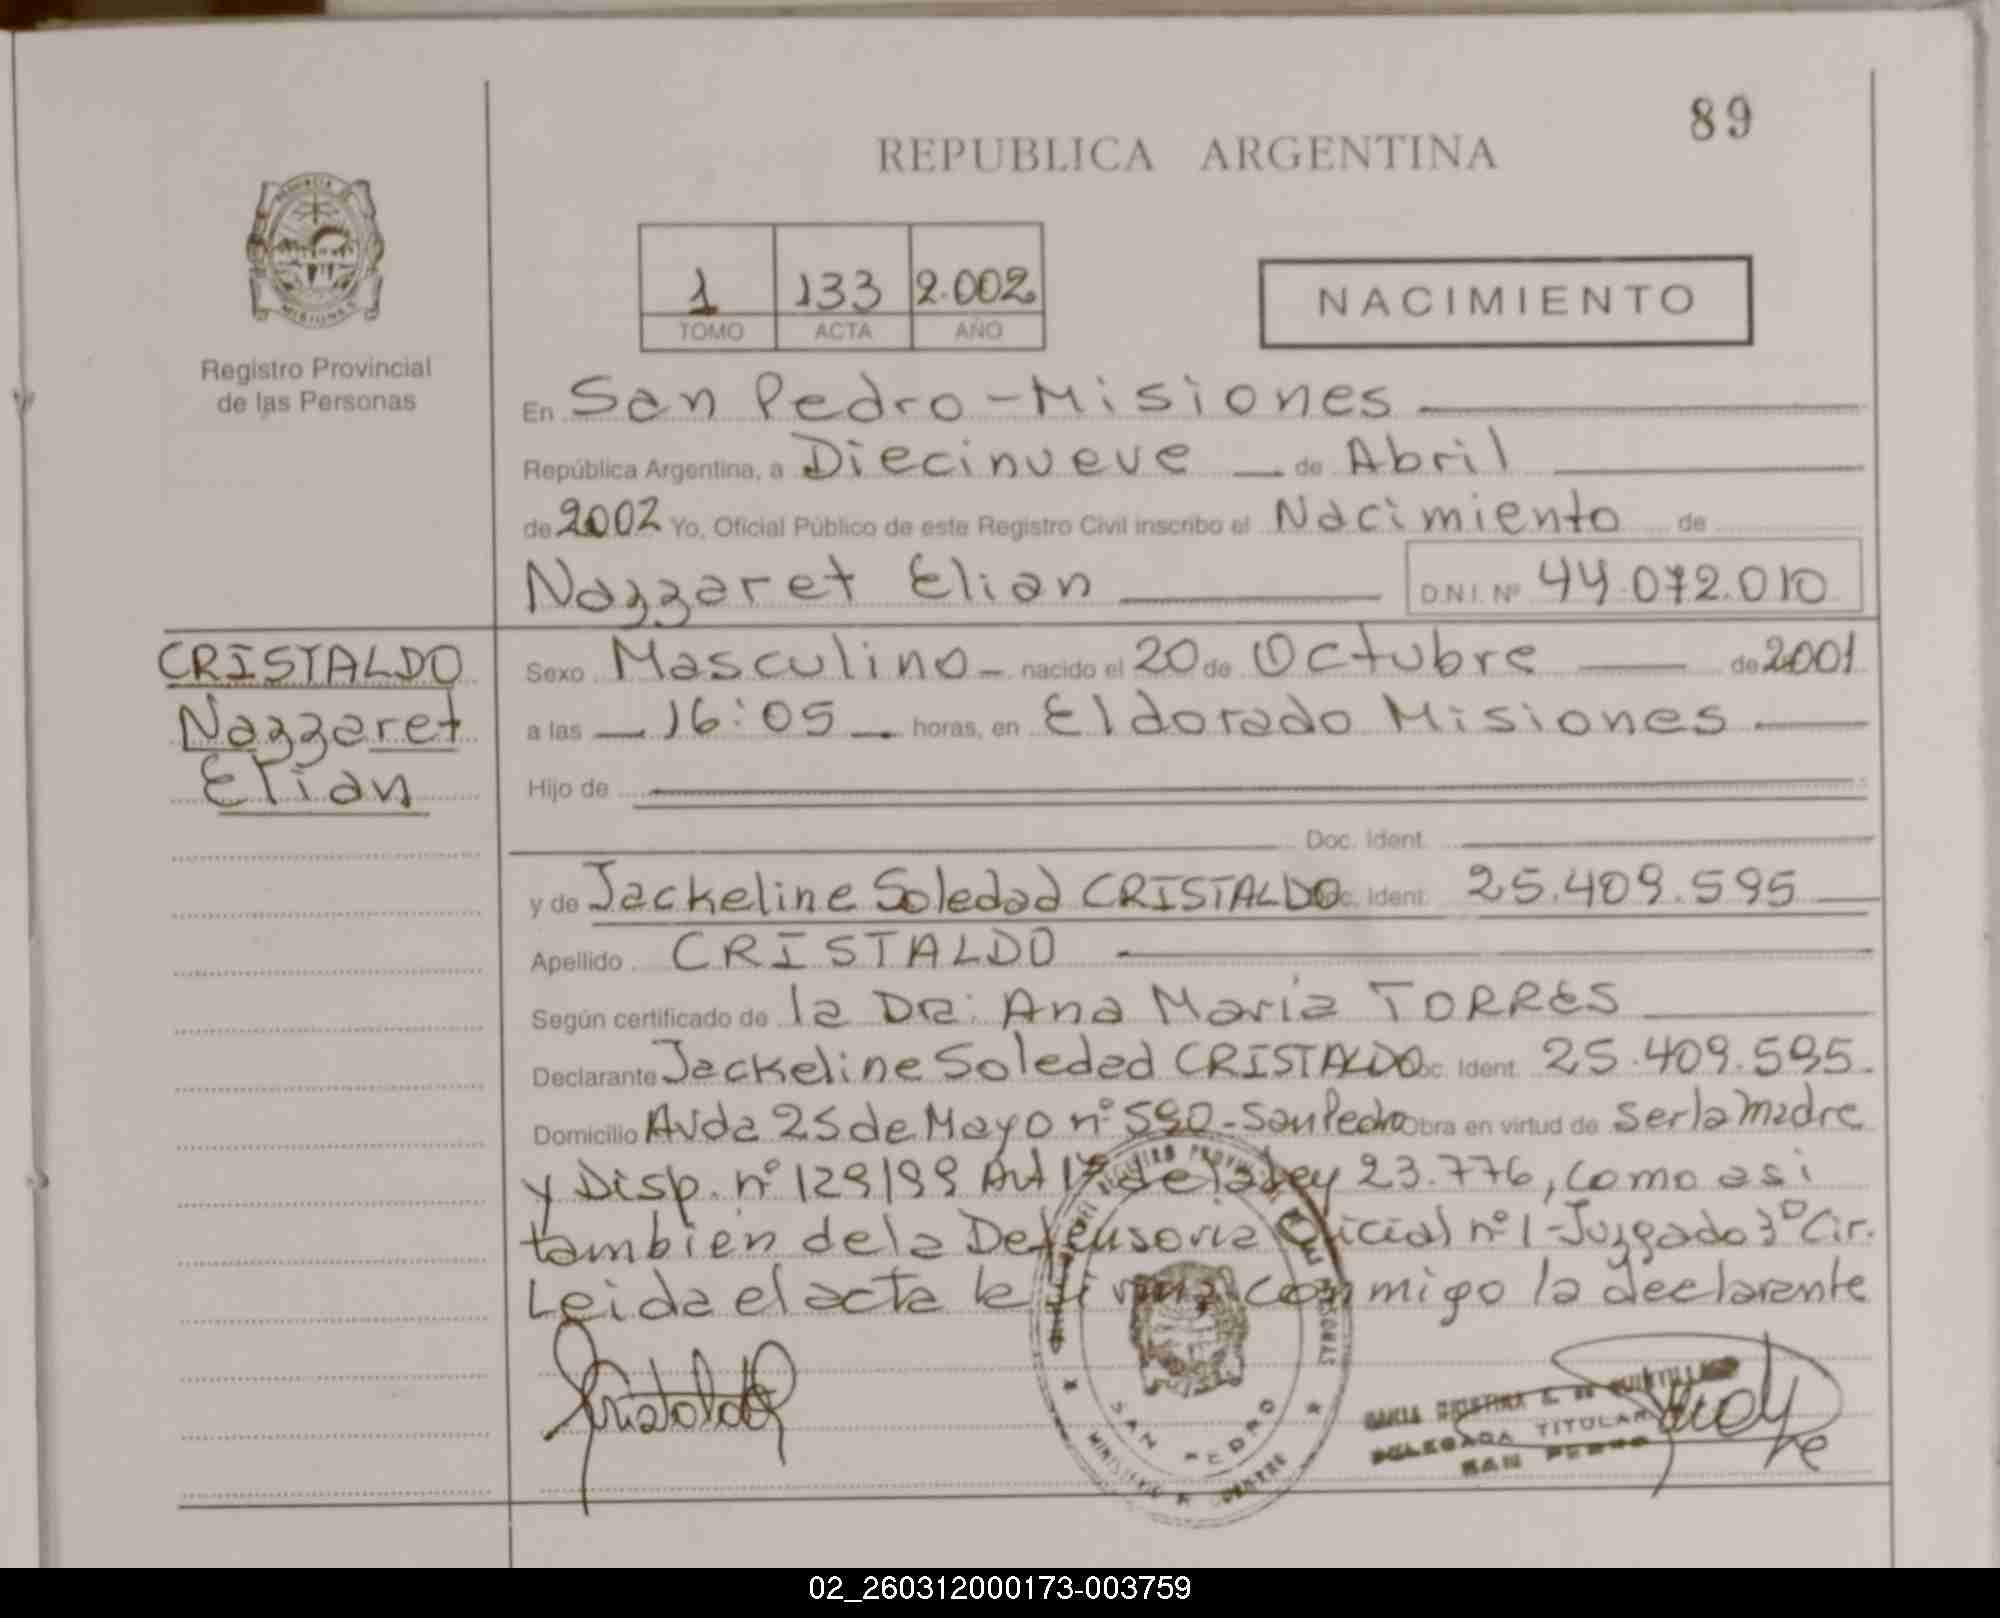 89
REPUBLICA ARGENTINA
PROVINCIA
MISIONES
Registro Provincial
de las Personas
1 133 2.002
TOMO ACTA AÑO
NACIMIENTO
En San Pedro - Misiones
República Argentina, a Diecinueve de Abril
de 2002 Yo, Oficial Público de este Registro Civil inscribo el Nacimiento de
Nazzaret Elian D.N.I. Nº 44.072.010
CRISTALDO
Nazzaret
Elian
Sexo Masculino nacido el 20 de Octubre de 2001
a las 16:05 horas, en Eldorado Misiones
Hijo de
Doc. Ident.
y de Jackeline Soledad CRISTALDO Doc. Ident. 25.409.595
Apellido CRISTALDO
Según certificado de la Dra: Ana Maria TORRES
Declarante Jackeline Soledad CRISTALDO Doc. Ident. 25.409.595.
Domicilio Avda 25 de Mayo nº 590 - San Pedro Obra en virtud de Ser la Madre
y Disp. nº 129/99 Art 17 de la Ley 23.776, como asi
tambien de la Defensoria Oficial nº 1 - Juzgado 3º Cir.
Leida el acta la firma conmigo la declarante
SAN PEDRO
DELEGADA TITULAR
SAN PEDRO
02_260312000173-003759